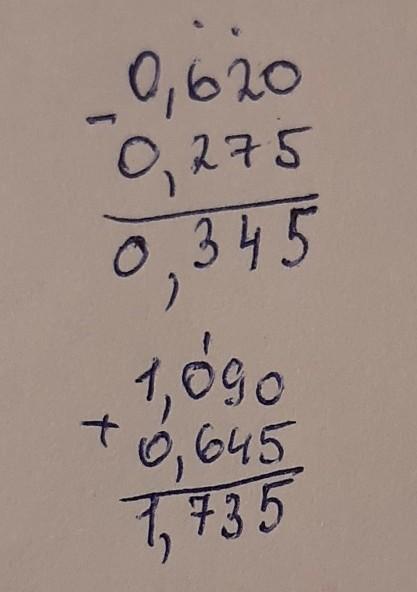 0,620
- 0,275
0,345
1
1,090
+ 0,645
1,735